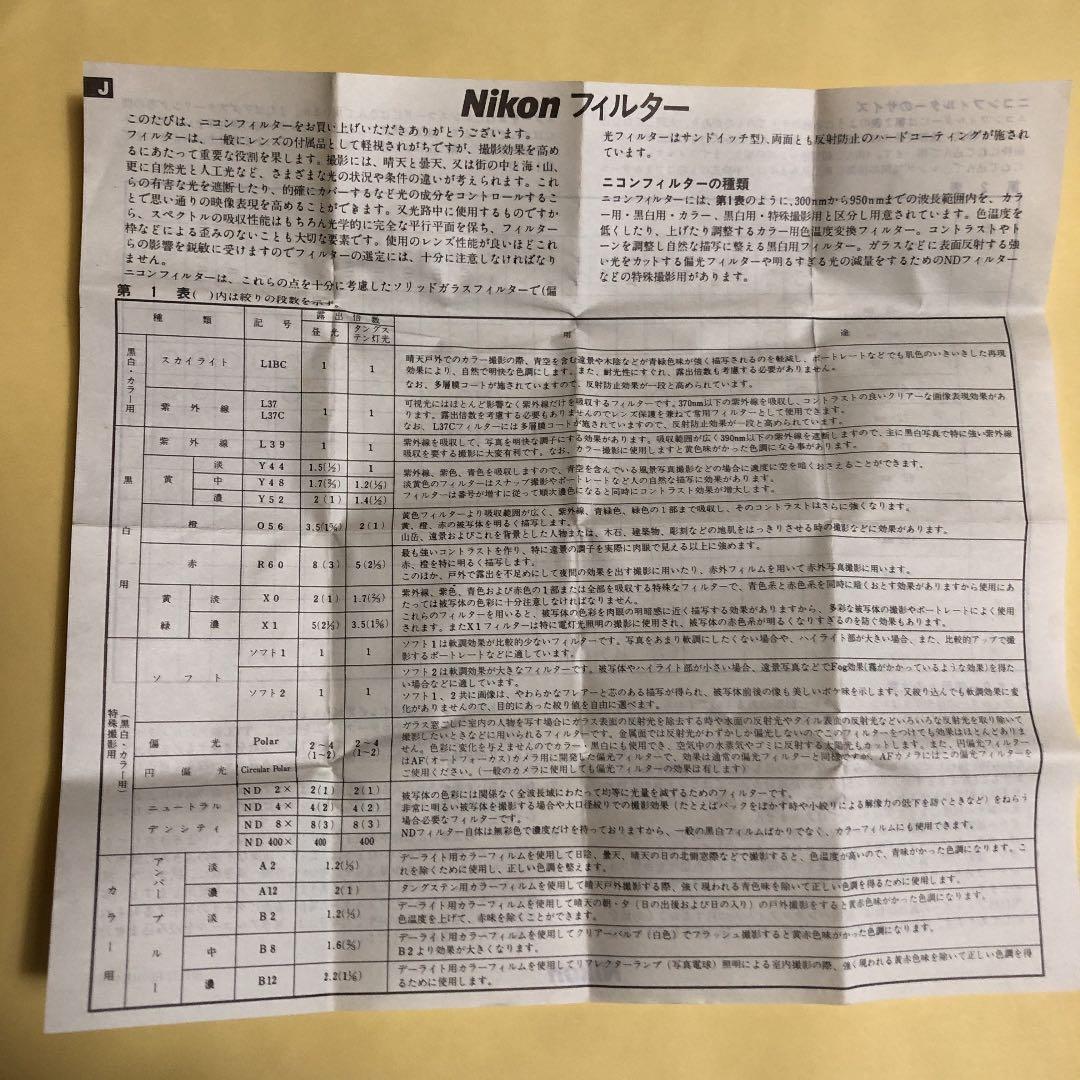 J
Nikon フィルター
このたびは、ニコンフィルターをお買い上げいただきありがとうございます。
フィルターは、一般にレンズの付属品として軽視されがちですが、撮影効果を高め
るにあたって重要な役割を果します。撮影には、晴天と曇天、又は街の中と海・山、
更に自然光と人工光など、さまざまな光の状況や条件の違いが考えられます。これ
らの有害な光を遮断したり、的確にカバーするなど光の成分をコントロールするこ
とで思い通りの映像表現を高めることができます。又光路中に使用するものですか
ら、スペクトルの吸収性能はもちろん光学的に完全な平行平面を保ち、フィルター
枠などによる歪みのないことも大切な要素です。使用のレンズ性能が良いほどこれ
らの影響を鋭敏に受けますのでフィルターの選定には、十分に注意しなければなり
ません。
ニコンフィルターは、これらの点を十分に考慮したソリッドガラスフィルターで(偏
光フィルターはサンドイッチ型)、両面とも反射防止のハードコーティングが施され
ています。
ニコンフィルターの種類
ニコンフィルターには、第1表のように、300nmから950nmまでの波長範囲内を、カラ
ー用・黒白用・カラー、黒白用・特殊撮影用と区分し用意されています。色温度を
低くしたり、上げたり調整するカラー用色温度変換フィルター。コントラストやト
ーンを調整し自然な描写に整える黒白用フィルター。ガラスなどに表面反射する強
い光をカットする偏光フィルターや明るすぎる光の減量をするためのNDフィルター
などの特殊撮影用があります。
第 1 表( )内は絞りの段数を示す。
種 類 記 号 露出倍数 用 途
昼 光 タングステン灯光
黒白・カラー用
スカイライト L1BC 1 1
晴天戸外でのカラー撮影の際、青空を含む遠景や木陰などが青緑色味が強く描写されるのを軽減し、ポートレートなどでも肌色のいきいきした再現
効果により、自然で明快な色調にします。また、耐光性にすぐれ、露出倍数も考慮する必要がありません。
なお、多層膜コートが施されていますので、反射防止効果が一段と高められます。
紫 外 線 L37 L37C 1 1
可視光にはほとんど影響なく紫外線だけを吸収するフィルターです。370nm以下の紫外線を吸収し、コントラストの良いクリアーな画像表現効果があ
ります。露出倍数を考慮する必要もありませんのでレンズ保護を兼ねて常用フィルターとして使用できます。
なお、L37Cフィルターには多層膜コートが施していますので、反射防止効果が一段と高められています。
黒 白 用
紫 外 線 L39 1 1
紫外線を吸収して、写真を明快な調子にする効果があります。吸収範囲が広く390nm以下の紫外線を遮断しますので、主に黒白写真で特に強い紫外線
吸収を要する撮影に大変有利です。なお、カラー撮影に使用しますと黄色味がかった色調になる事があります。
黄 淡 Y44 1.5(⅓) 1
中 Y48 1.7(⅔) 1.2(⅓)
濃 Y52 2(1) 1.4(⅓)
紫外線、紫色、青色を吸収しますので、青空を含んでいる風景写真撮影などの場合に適度に空を暗くおさえることができます。
淡黄色のフィルターはスナップ撮影やポートレートなど人の自然な描写に効果があります。
フィルターは番号が増すに従って順次濃色になると同時にコントラスト効果が増大します。
橙 O56 3.5(1⅔) 2(1)
黄色フィルターより吸収範囲が広く、紫外線、青緑色、緑色の1部まで吸収し、そのコントラストはさらに強くなります。
黄、橙、赤の被写体を明るく描写します。
山岳、遠景およびこれを背景とした人物または、木石、建築物、彫刻などの地肌をはっきりさせる時の撮影などに効果があります。
赤 R60 8(3) 5(2⅓)
最も強いコントラストを作り、特に遠景の調子を実際に肉眼で見える以上に強めます。
赤、橙を特に明るく描写します。
このほか、戸外で露出を不足めにして夜間の効果を出す撮影に用いたり、赤外フィルムを用いて赤外写真撮影に用います。
黄緑 淡 X0 2(1) 1.7(⅔)
濃 X1 5(2⅓) 3.5(1⅔)
紫外線、紫色、青色および赤色の1部または全部を吸収する特殊なフィルターで、青色系と赤色系を同時に暗くおとす効果がありますから使用にあ
たっては被写体の色彩に十分注意しなければなりません。
これらのフィルターを用いると、被写体の色彩を肉眼の明暗感に近く描写する効果がありますから、多彩な被写体の撮影やポートレートによく使用
されます。またX1フィルターは特に電灯光照明の撮影に使用され、被写体の赤色系が明るくなりすぎるのを防ぐ効果もあります。
特殊撮影用(黒白・カラー用)
ソフト
ソフト1 1 1
ソフト1は軟調効果が比較的少ないフィルターです。写真をあまり軟調にしたくない場合や、ハイライト部が大きい場合、また、比較的アップで撮
影するポートレートなどに適しています。
ソフト2 1 1
ソフト2は軟調効果が大きなフィルターです。被写体やハイライト部が小さい場合、遠景写真などでFog効果(霧がかかっているような効果)を得た
い場合などに適しています。
ソフト1、2共に画像は、やわらかなフレアーと芯のある描写が得られ、被写体前後の像も美しいボケ味を示します。又絞り込んでも軟調効果に変
化がありませんので、目的にあった絞り値を自由に選べます。
偏 光 Polar 2～4(1～2) 2～4(1～2)
円 偏 光 Circular Polar
ガラス窓ごしに室内の人物を写す場合にガラス表面の反射光を除去する時や水面の反射光やタイル表面の反射光などいろいろな反射光を取り除いて
撮影したいときなどに用いられるフィルターです。金属面では反射光がわずかしか偏光しないのでこのフィルターをつけても効果はほとんどありま
せん。色彩に変化を与えませんのでカラー・黒白にも使用でき、空気中の水蒸気やゴミに反射する太陽光もカットします。また、円偏光フィルター
はAF(オートフォーカス)カメラ用に開発した偏光フィルターで、効果は通常の偏光フィルターと同様ですが、AFカメラにはこの偏光フィルターを
ご使用ください。(一般のカメラに使用しても偏光フィルターの効果は有します)
ニュートラルデンシティ
ND 2× 2(1) 2(1)
ND 4× 4(2) 4(2)
ND 8× 8(3) 8(3)
ND 400× 400 400
被写体の色彩には関係なく全波長域にわたって均等に光量を減ずるためのフィルターです。
非常に明るい被写体を撮影する場合や大口径絞りでの撮影効果(たとえばバックをぼかす時や小絞りによる解像力の低下を防ぐときなど)をねらう
場合必要なフィルターです。
NDフィルター自体は無彩色で濃度だけを持っておりますから、一般の黒白フィルムばかりでなく、カラーフィルムにも使用できます。
カラー用
アンバー 淡 A2 1.2(⅓)
デーライト用カラーフィルムを使用して日陰、曇天、晴天の日の北側窓際などで撮影すると、色温度が高いので、青味がかった色調になります。こ
れを除くために使用し、正しい色調を整えます。
濃 A12 2(1)
タングステン用カラーフィルムを使用して晴天戸外撮影する際、強く現われる青色味を除いて正しい色調を得るために使用します。
ブルー 淡 B2 1.2(⅓)
デーライト用カラーフィルムを使用して晴天の朝・夕(日の出後および日の入り)の戸外撮影をすると黄赤色味がかった色調になります。
色温度を上げて、赤味を除くことができます。
中 B8 1.6(⅔)
デーライト用カラーフィルムを使用してクリアーバルブ(白色)でフラッシュ撮影すると黄赤色味がかった色調になります。
B2より効果が大きくなります。
濃 B12 2.2(1⅓)
デーライト用カラーフィルムを使用してリフレクターランプ(写真電球)照明による室内撮影の際、強く現われる黄赤色味を除いて正しい色調を得
るために使用します。